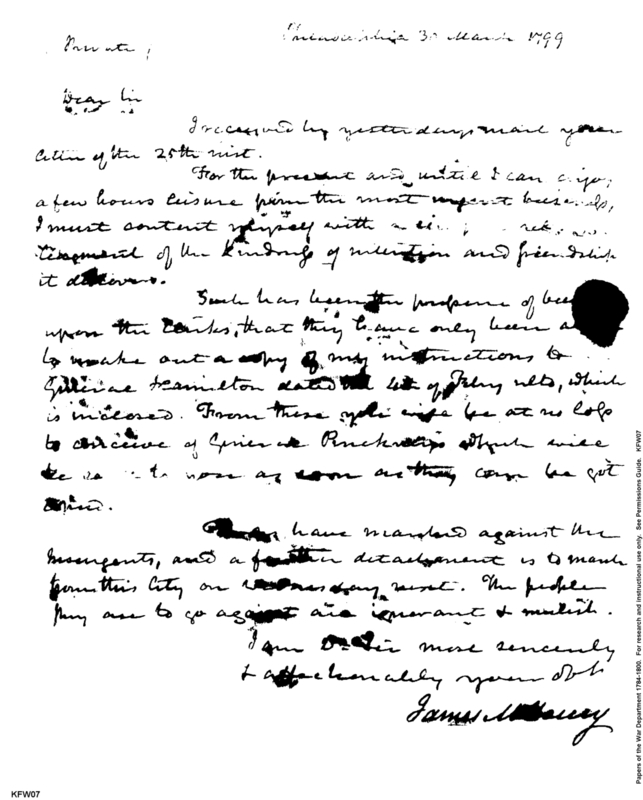 Private,
Philadelphia 30 March 1799
Dear Sir
I received by yesterdays mail your
letter of the 25th inst.
For the present and until I can enjoy
a few hours leisure from the most urgent business,
I must content myself with a
of the kindness of intention and friendship
it discovers.
Such has been the pressure of
upon the Clerks, that they have only been
to make out a copy of my instructions to
General Hamilton dated the 4th of Feby ulto, which
is inclosed. From these you will be at no loss
to conceive of General Pinckneys which will
be to you as soon as they can be got
have marched against the
Insurgents, and a further detachment is to march
from this City on next. The people
they are to go against are ignorant & mulish.
I am Dr Sir most sincerely
& affectionately your obt
James McHenry
KFW07
Papers of the War Department 1784-1800. For research and instructional use only. See Permissions Guide. KFW07